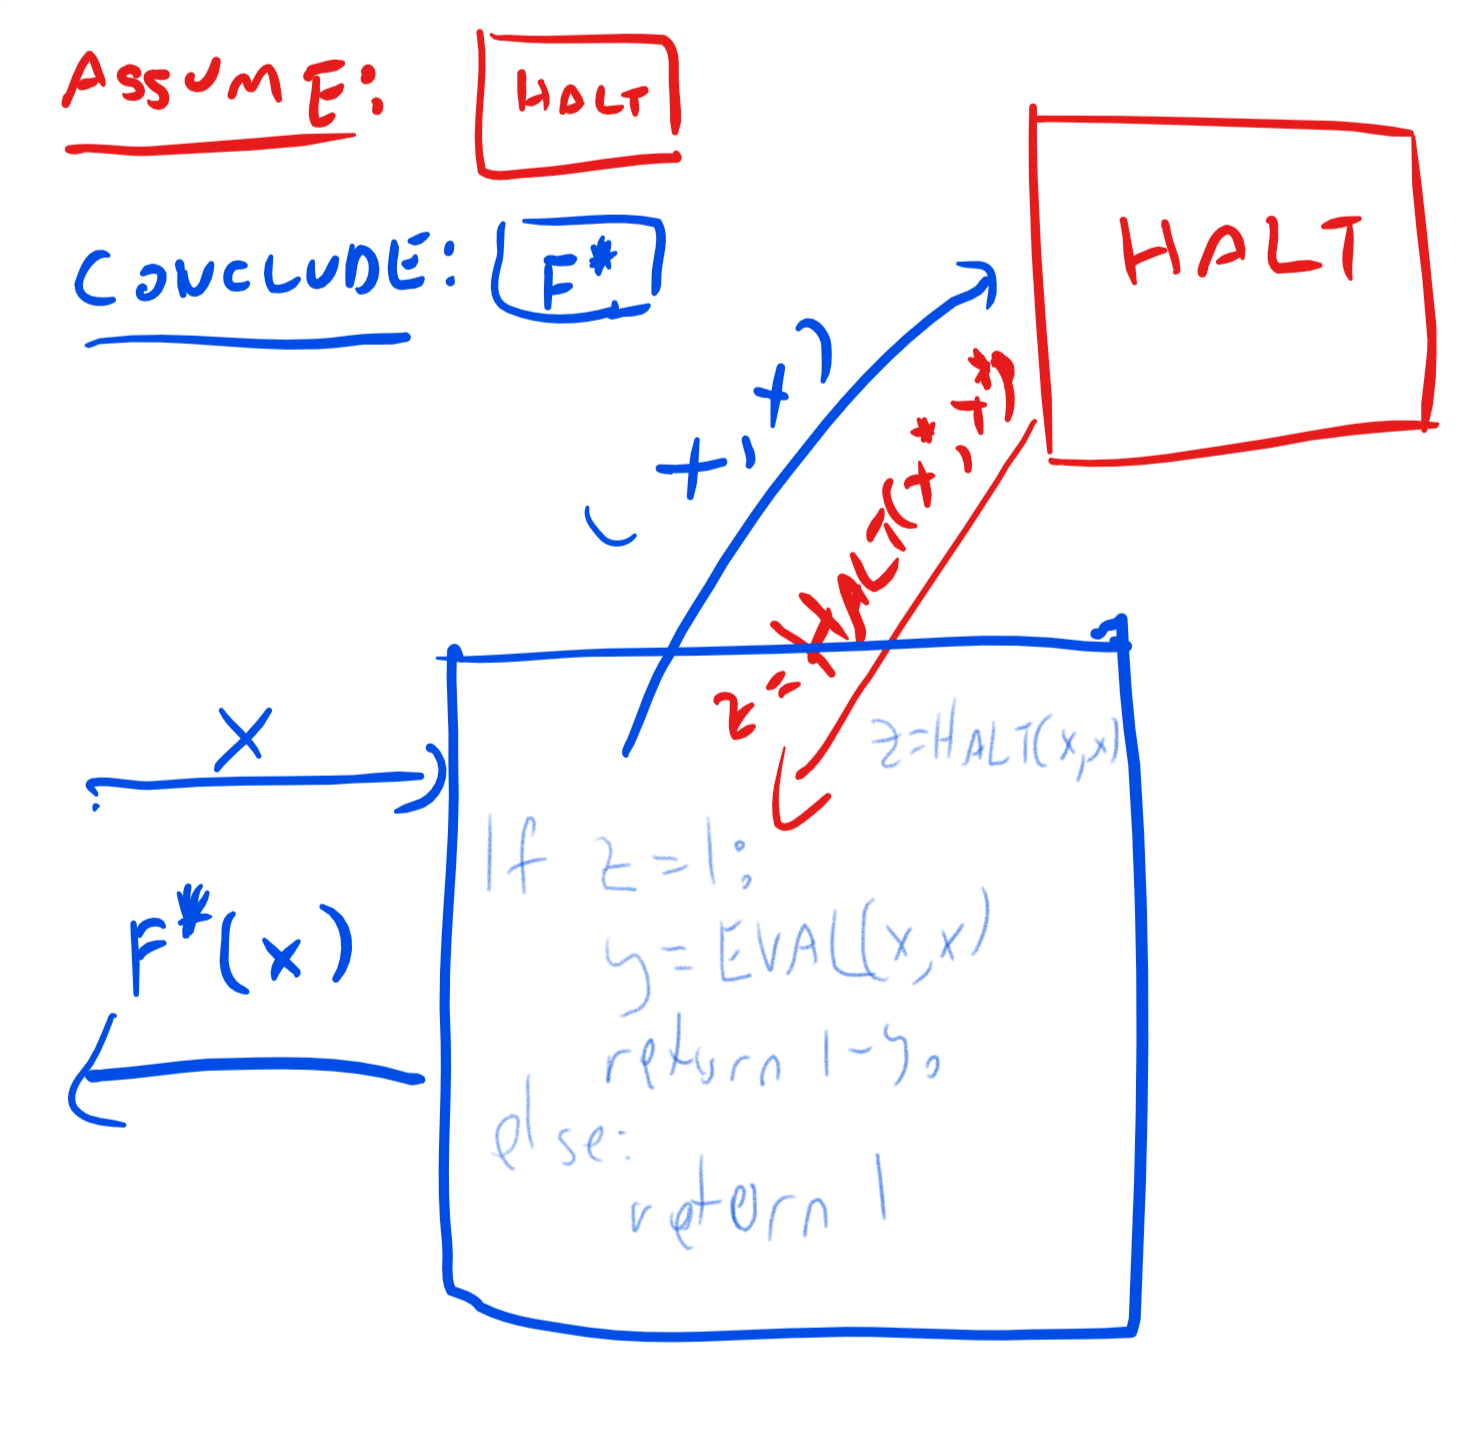 ASSUME: HALT
CONCLUDE: F*
HALT
(x,x)
z=HALT(x*,x*)
x
F*(x)
z=HALT(x,x)
If z=1:
y=EVAL(x,x)
return 1-y.
else:
return 1